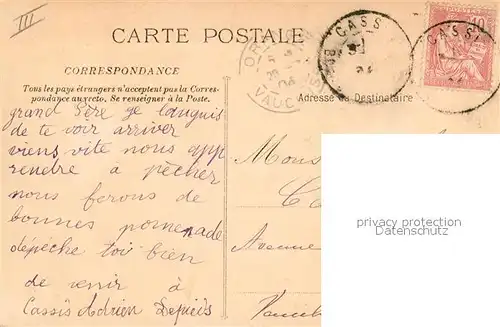 III
CARTE POSTALE
CASS
CASSI
10
OR
VAUC
CORRESPONDANCE
Tous les pays étrangers n'acceptent pas la Corres-
pondance au recto. Se renseigner à la Poste.
Adresse du Destinataire
grand Père je languis
de te voir arriver
viens vite nous app
rendre à pècher
nous ferons de
bonnes promenade
depèche toi bien
de venir à
Cassis Adrien
Mons
Ca
Avenue
privacy protection
Datenschutz